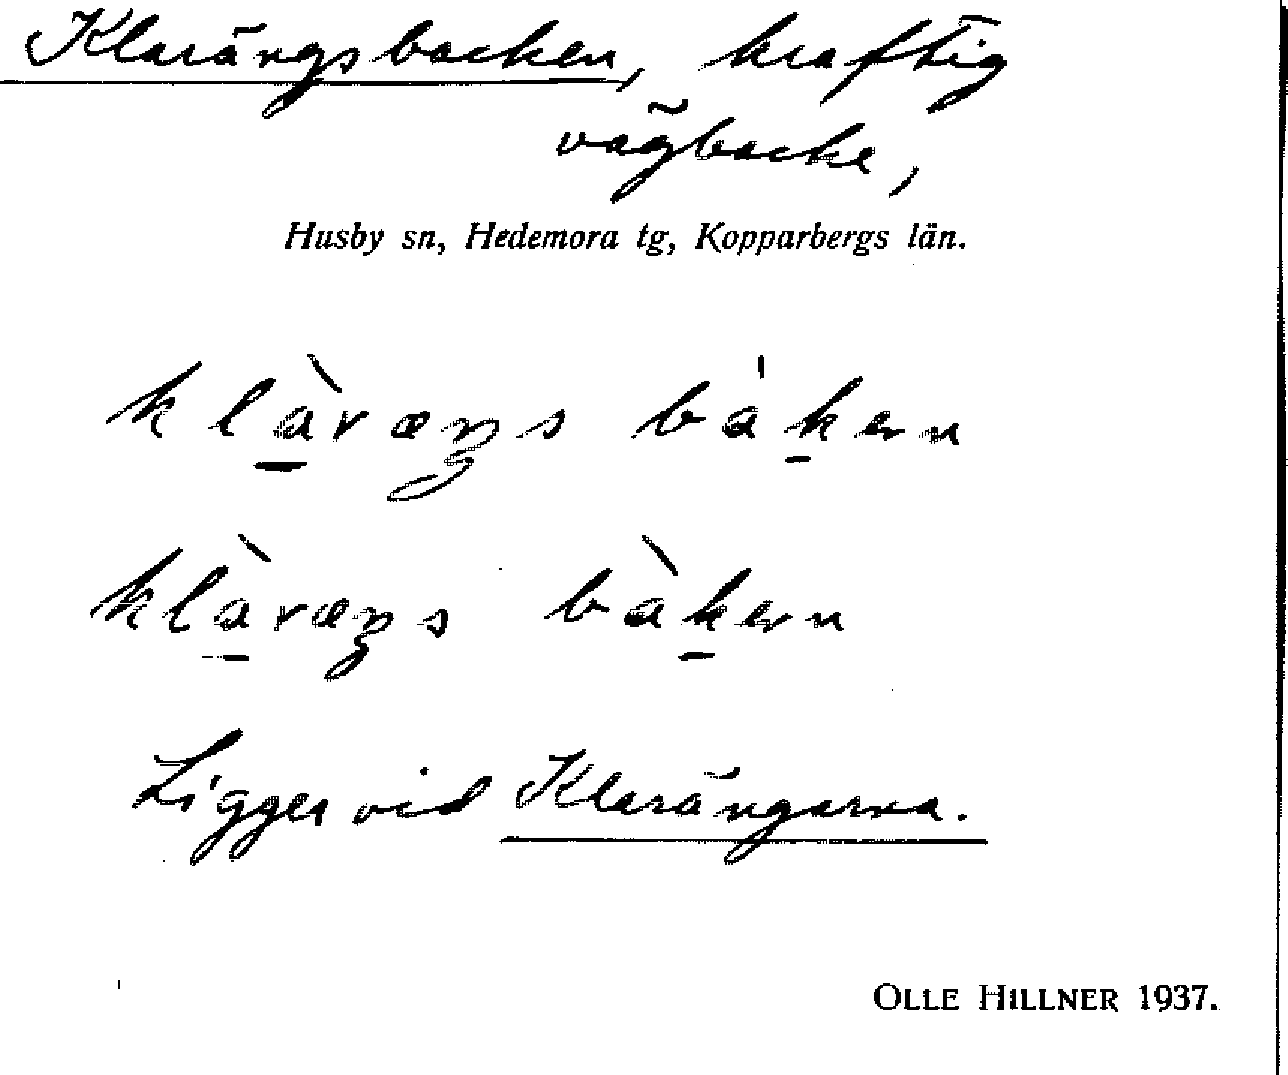 Klarängsbacken, kraftig
vägbacke,
Husby sn, Hedemora tg, Kopparbergs län.
klàræŋs bákern
klàræŋs bàkern
Ligger vid Klarängarna.
OLLE HILLNER 1937.